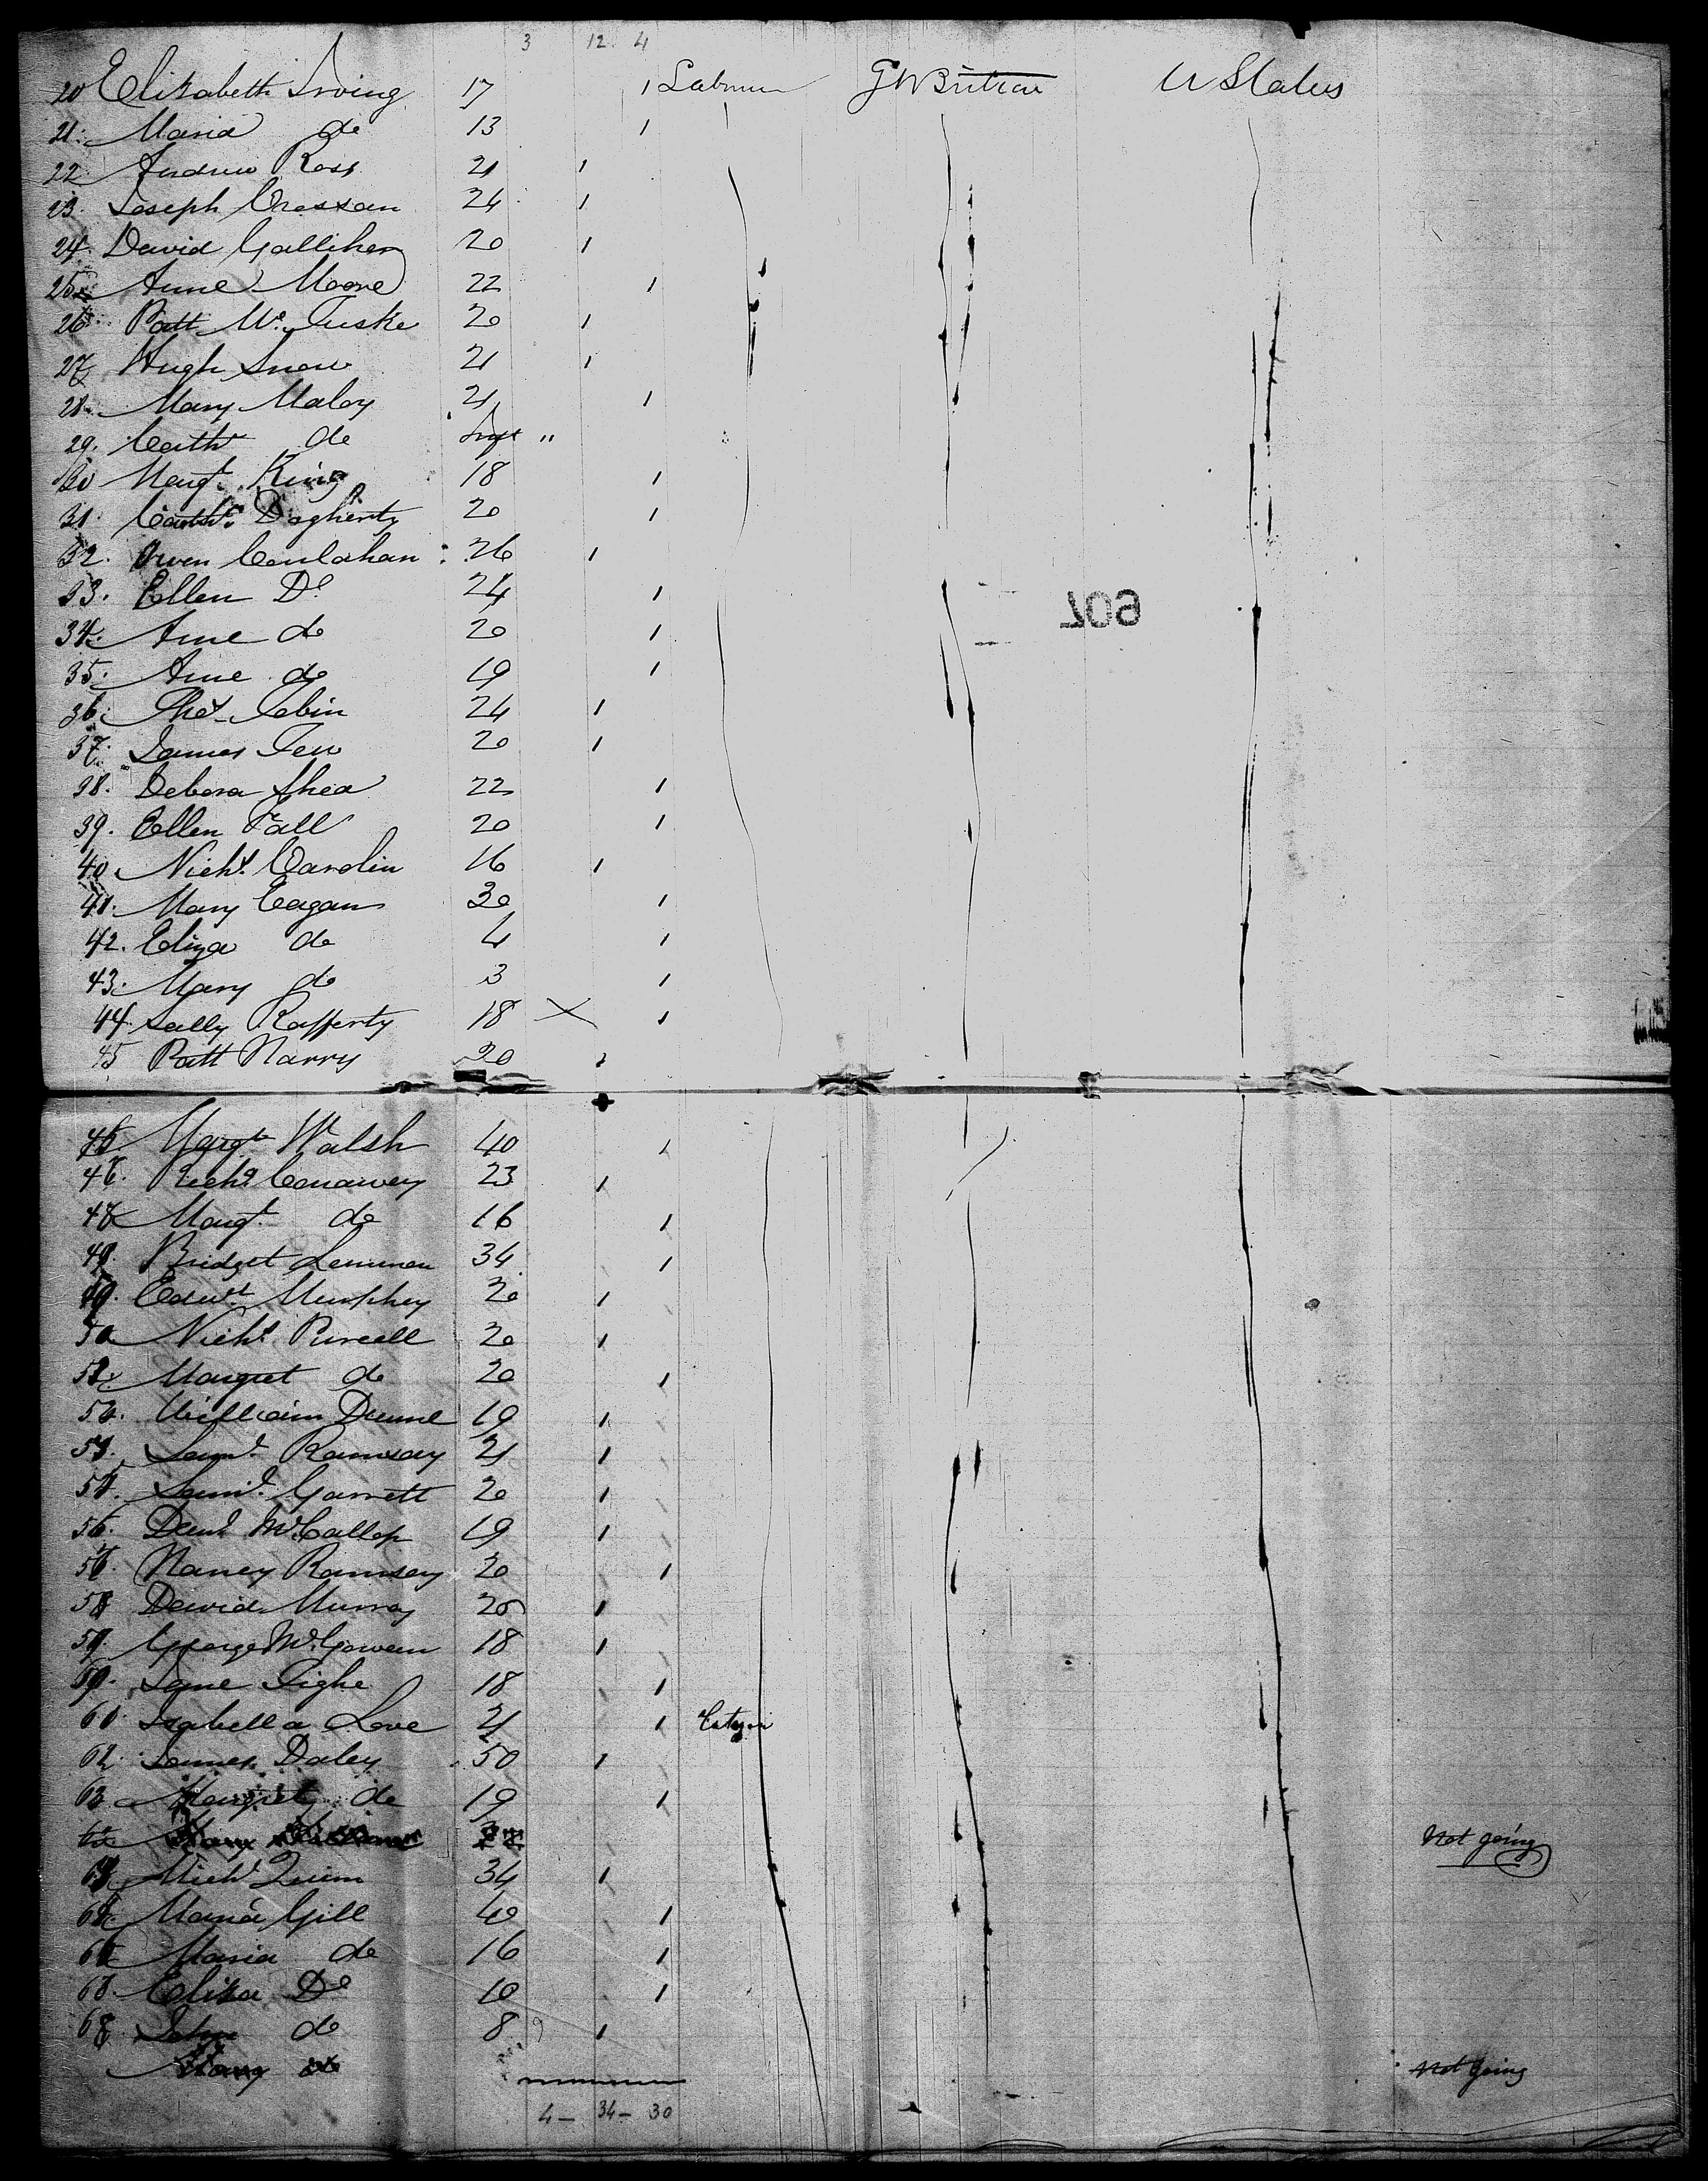 3 12. 4
20 Elizabeth Irving 17 1 Labourer Gt Britain U States
21. Maria do 13 1
22 Andrew Ross 21 1
23. Joseph Cressan 24 1
24. David Galliher 20 1
25 Anne Moore 22 1
26 Patt Mc Tuske 20 1
27 Hugh Snow 21 1
28 Mary Maloy 21 1
29. Cathe do Inft "
30 Margt. King 18 1
31. Cathe. Dogherty 20 1
32. Owen Coulahan 26 1
33. Ellen Do 24 1
34. Anne do 20 1
35. Anne do 19 1
36. Thos Tobin 24 1
37. James Few 20 1
38. Debora Shea 22 1
39. Ellen Fall 20 1
40 Nichs. Carolin 16 1
41. Mary Eagan 30 1
42. Eliza do 4 1
43. Mary do 3 1
44 Sally Rafferty 18 X 1
45 Patt Harry 20 1
46 Margt Walsh 40 1
Richd Conawey 23 1
Margt. do 16 1
Bridget Lennnen 34 1
Edwd. Murphey 20 1
Nichs. Purcell 20 1
Margret do 20 1
William Dunne 19 1
Saml. Ramsay 21 1
Saml. Garrett 20 1
Danl McCallop 19 1
Nancy Ramsey 20 1
58 David Murray 20 1
59. George McGowen 18 1
Jane Tighe 18 1
Isabella Love 21 1
62. James Daley 50 1
63 Margret do 19 1
Not going
Michl Quinn 34 1
Maria Gill 40 1
Maria do 16 1
Eliza Do 10 1
68 John do 8 1
Mary do Not going
4 — 34 — 30
709